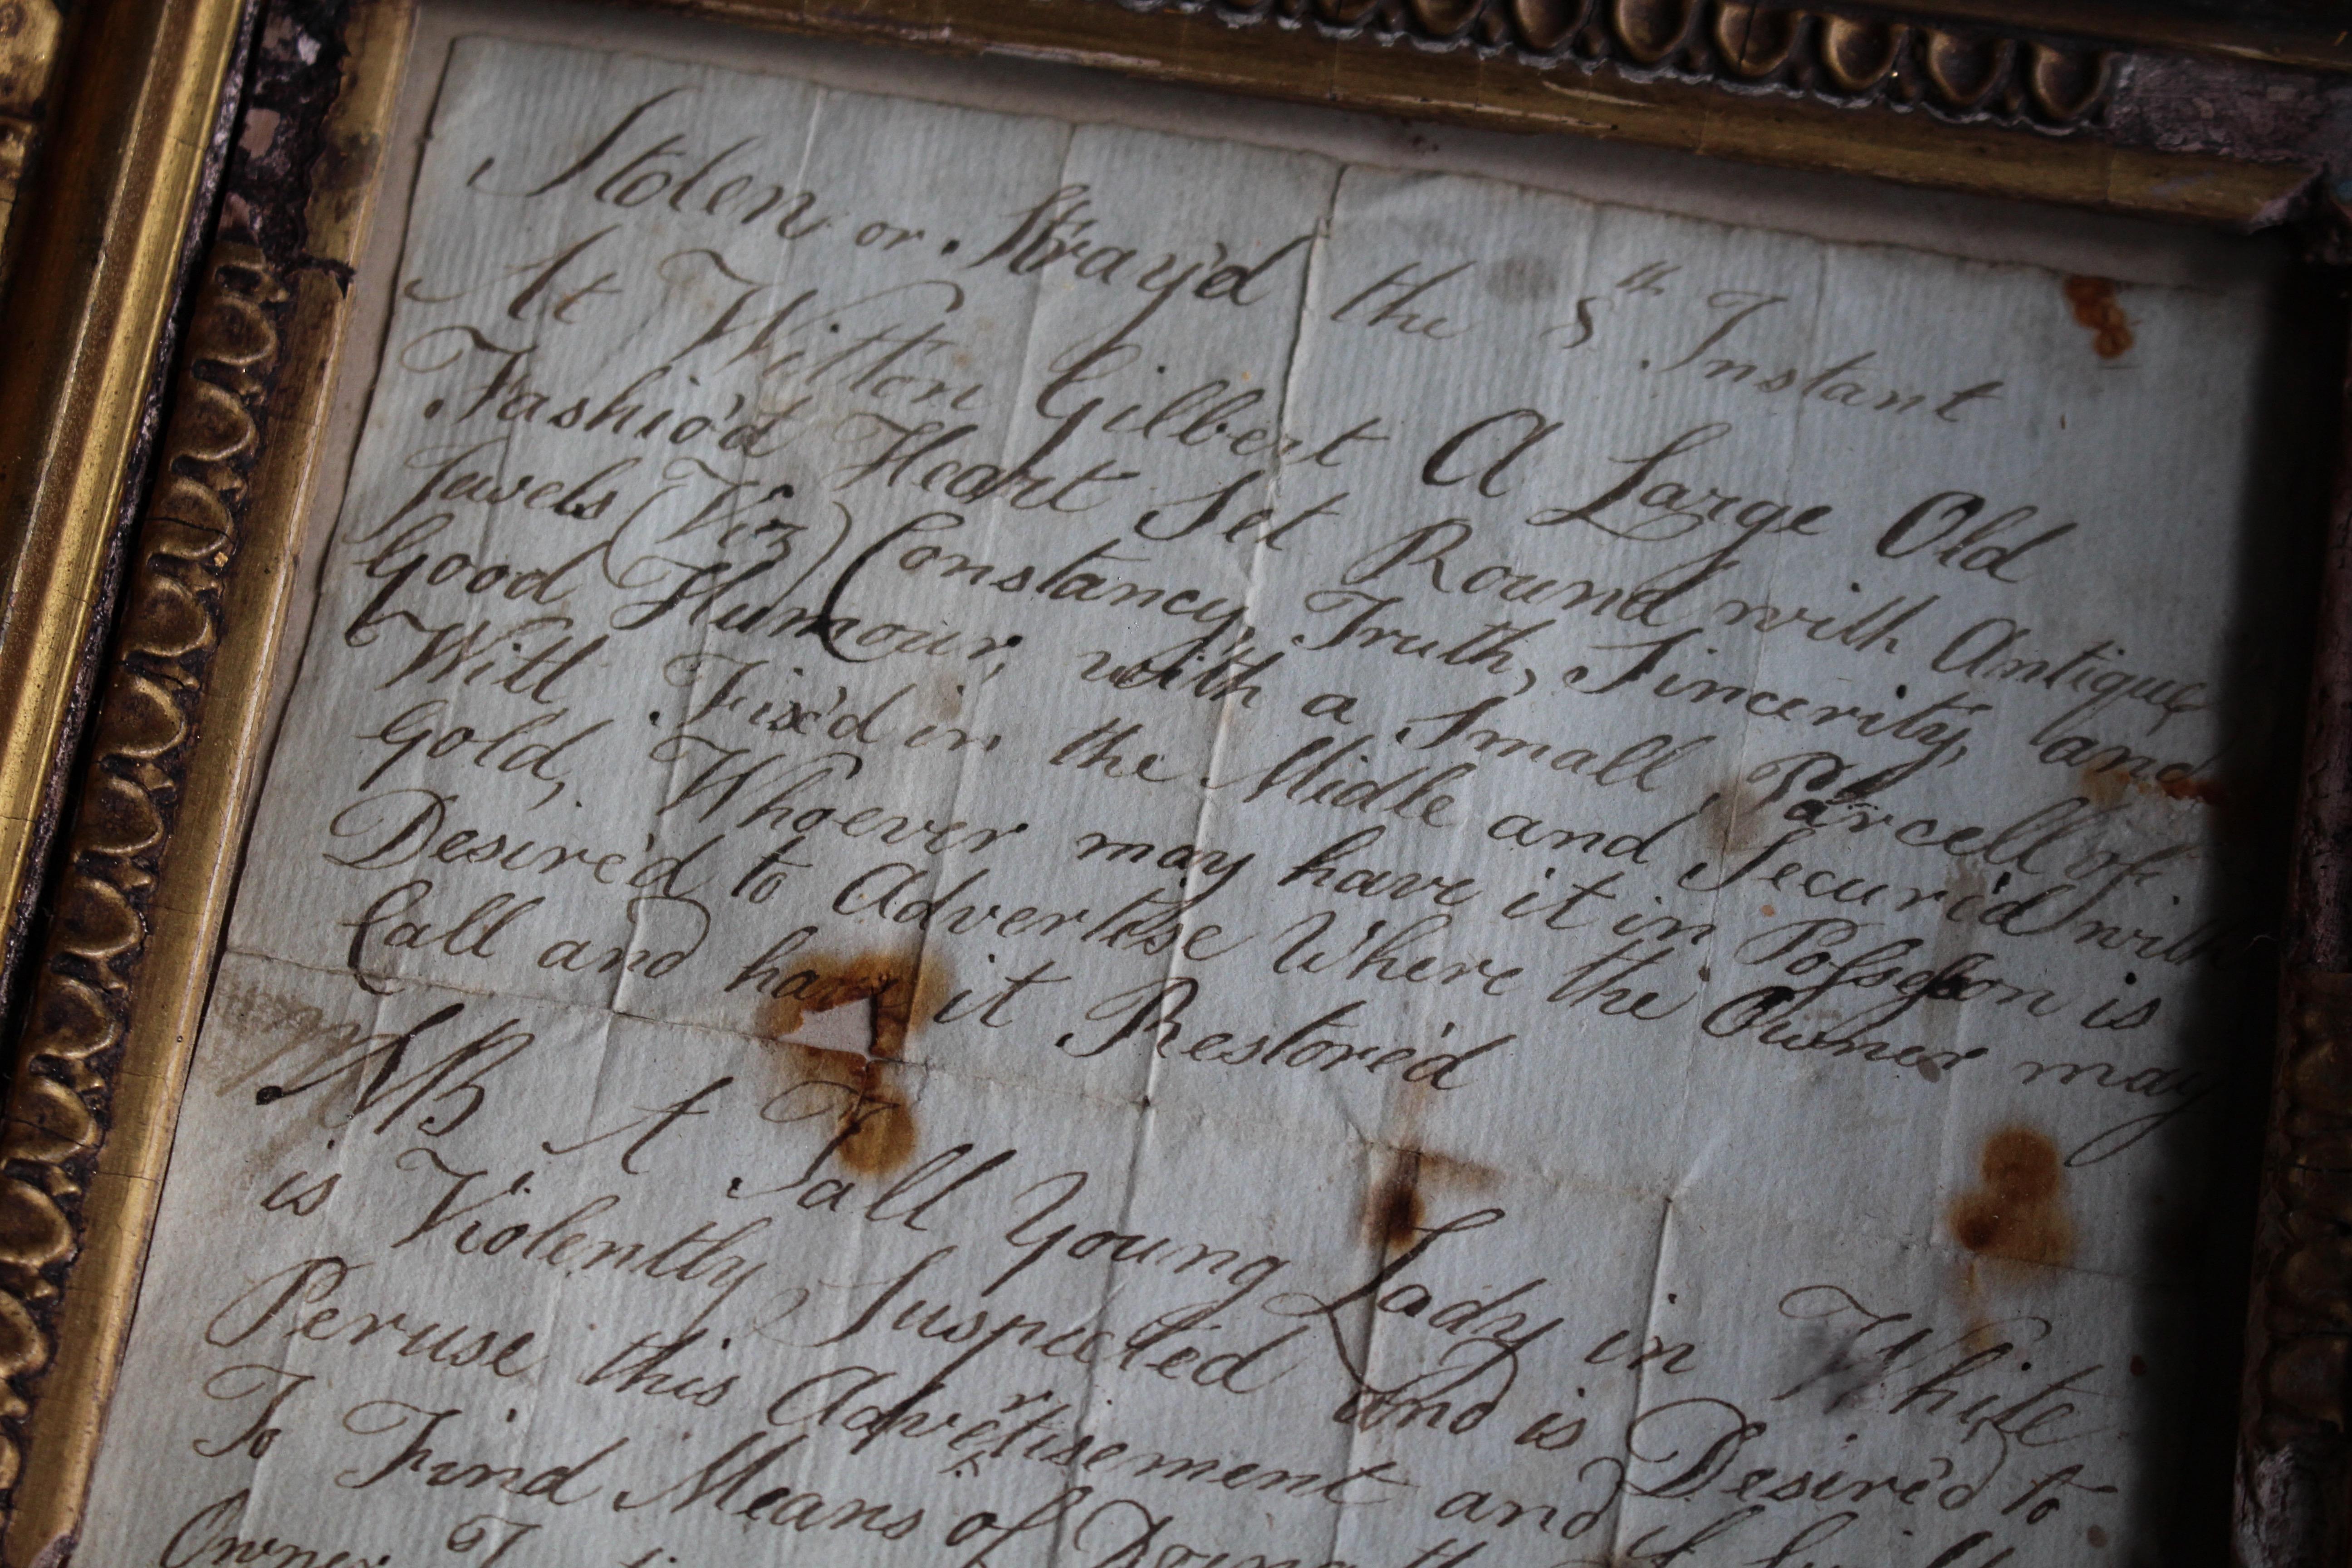 Stolen or Stray'd the 8th Instant
At Witton Gilbert A Large Old
Fashio'd Heart Set Round with Antique
Juwels (Viz) Constancy, Truth, Sincerity, and
Good Humour, with a Small Parcell of
Witt Fix'd in the Midle and Secur'd with
Gold, Whoever may have it in Poſseſsion is
Desire'd to Advertise Where the Owner may
Call and have it Restore'd
NB A Tall Young Lady in White
is Violently Suspected and is Desire'd to
Peruse this Advertisement and if
To Find Means of Doing the
Owner